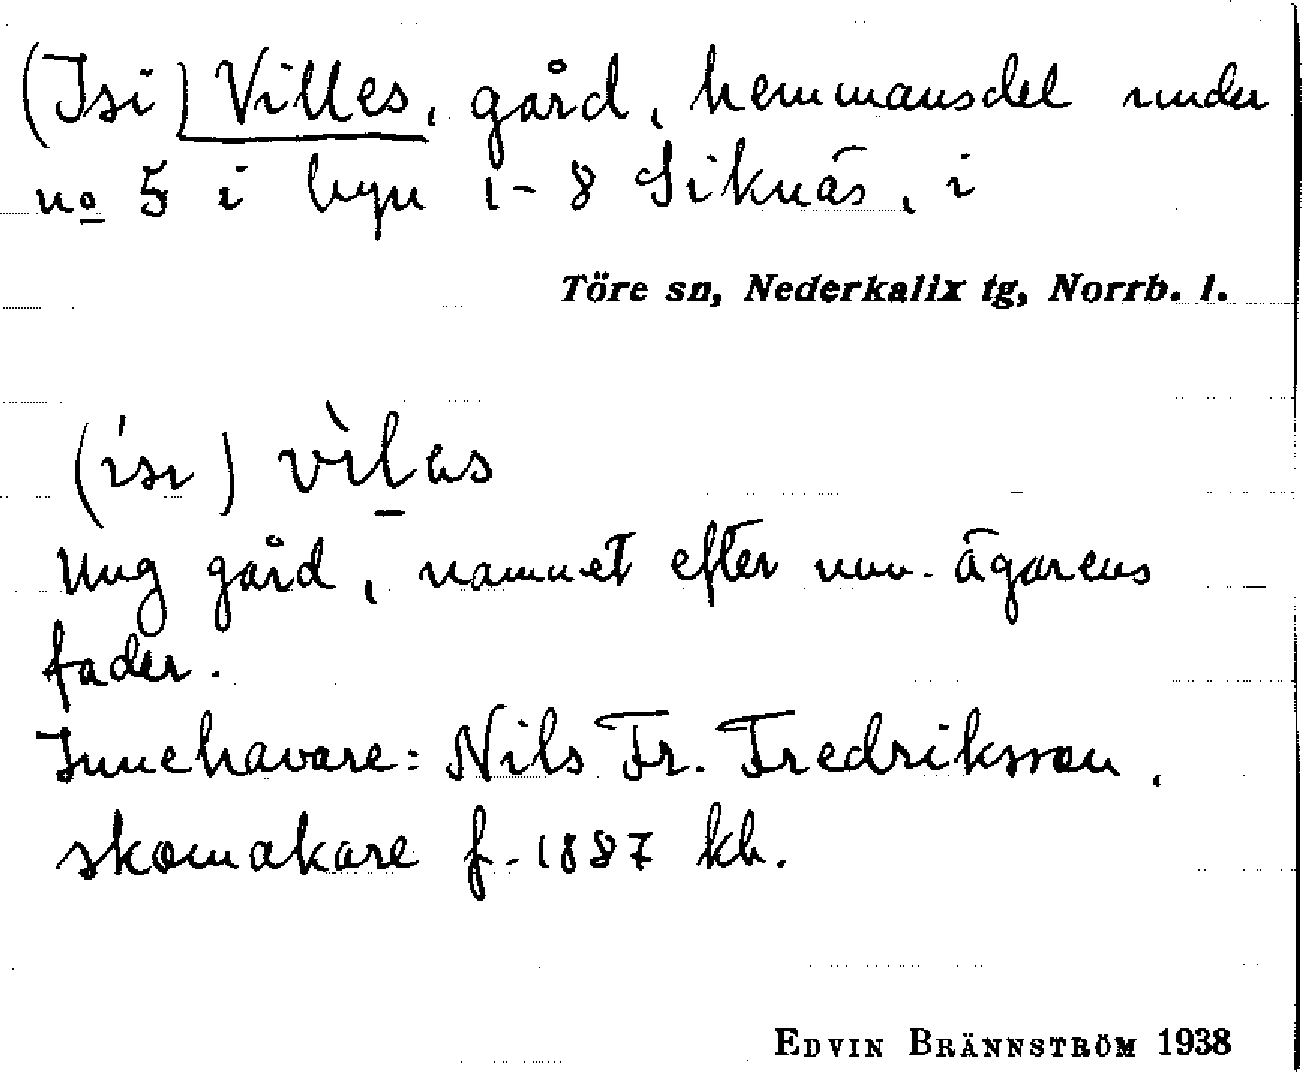 (Isi) Villes, gård, hemmansdel under
no 5 i byn 1-8 Siknäs, i
Töre sn, Nederkalix tg, Norrb. l.
(ísı) vìlas
Ung gård, namnet efter nuv. ägarens
fader.
Innehavare: Nils Fr. Fredriksson,
skomakare f. 1887 kb.
EDVIN BRÄNNSTRÖM 1938